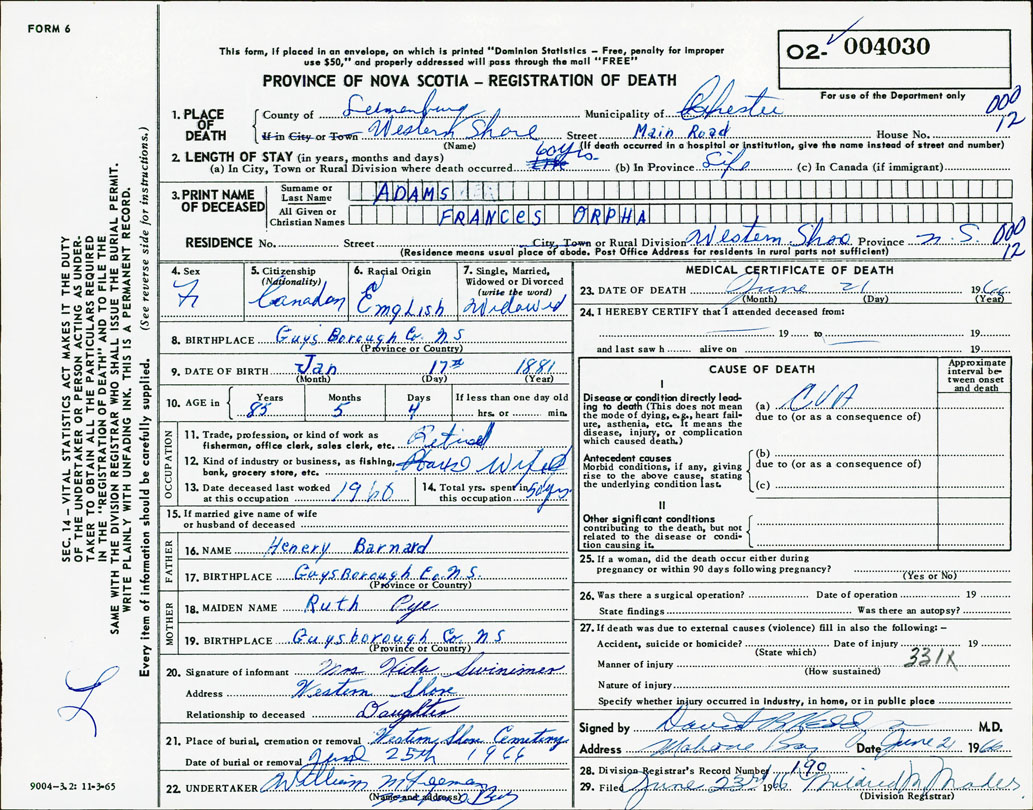 FORM 6
O2- 004030
This form, if placed in an envelope, on which is printed "Dominion Statistics – Free, penalty for improper
use $50," and properly addressed will pass through the mail "FREE"
PROVINCE OF NOVA SCOTIA – REGISTRATION OF DEATH
For use of the Department only
000
12
1. PLACE OF DEATH
County of Lunenburg Municipality of Chester
If in City or Town Western Shore Street Main Road House No.
(Name) (If death occurred in a hospital or institution, give the name instead of street and number)
2. LENGTH OF STAY (in years, months and days)
(a) In City, Town or Rural Division where death occurred 60 yrs. (b) In Province Life (c) In Canada (if immigrant)
3. PRINT NAME OF DECEASED
Surname or Last Name ADAMS
All Given or Christian Names FRANCES ORPHA
RESIDENCE No. Street City, Town or Rural Division Western Shoo Province N.S. 000
12
(Residence means usual place of abode. Post Office Address for residents in rural parts not sufficient)
SEC. 14 – VITAL STATISTICS ACT MAKES IT THE DUTY
OF THE UNDERTAKER OR PERSON ACTING AS UNDER-
TAKER TO OBTAIN ALL THE PARTICULARS REQUIRED
IN THE "REGISTRATION OF DEATH" AND TO FILE THE
SAME WITH THE DIVISION REGISTRAR WHO SHALL ISSUE THE BURIAL PERMIT.
WRITE PLAINLY WITH UNFADING INK. THIS IS A PERMANENT RECORD.
Every item of information should be carefully supplied. (See reverse side for instructions.)
4. Sex F
5. Citizenship (Nationality) Canadan
6. Racial Origin English
7. Single, Married, Widowed or Divorced (write the word) Widowed
8. BIRTHPLACE Guys Borough Co. N.S
(Province or Country)
9. DATE OF BIRTH Jan 17th 1881
(Month) (Day) (Year)
10. AGE in Years 85 Months 5 Days 4 If less than one day old hrs. or min.
OCCUPATION
11. Trade, profession, or kind of work as
fisherman, office clerk, sales clerk, etc. Retired
12. Kind of industry or business, as fishing,
bank, grocery store, etc. House Wife
13. Date deceased last worked
at this occupation 1960
14. Total yrs. spent in
this occupation 50 yrs
15. If married give name of wife
or husband of deceased
FATHER
16. NAME Henery Barnard
17. BIRTHPLACE GuysBorough Co. N.S.
(Province or Country)
MOTHER
18. MAIDEN NAME Ruth Pye
19. BIRTHPLACE Guysborough Co N S
(Province or Country)
20. Signature of informant Mrs Swinimer
Address Western Shore
Relationship to deceased Daughter
21. Place of burial, cremation or removal Western Shore Cemetery
Date of burial or removal June 25th 1966
22. UNDERTAKER William
(Name and address)
9004-3.2: 11-3-65
MEDICAL CERTIFICATE OF DEATH
23. DATE OF DEATH June 21 1966
(Month) (Day) (Year)
24. I HEREBY CERTIFY that I attended deceased from:
19 to 19
and last saw h alive on 19
CAUSE OF DEATH
Approximate interval be-tween onset and death
I
Disease or condition directly lead-
ing to death (This does not
mean the mode of dying, e.g., heart fail-
ure, asthenia, etc. It means the
disease, injury, or complication
which caused death.)
(a) CVA
due to (or as a consequence of)
Antecedent causes
Morbid conditions, if any, giving
rise to the above cause, stating
the underlying condition last.
(b)
due to (or as a consequence of)
(c)
II
Other significant conditions
contributing to the death, but not
related to the disease or condi-
tion causing it.
25. If a woman, did the death occur either during
pregnancy or within 90 days following pregnancy?
(Yes or No)
26. Was there a surgical operation? Date of operation 19
State findings Was there an autopsy?
27. If death was due to external causes (violence) fill in also the following:–
Accident, suicide or homicide? Date of injury 19
(State which)
Manner of injury 331X
(How sustained)
Nature of injury
Specify whether injury occurred in Industry, in home, or in public place
Signed by David M.D.
Address Mahone Bay Date June 2 1966
28. Division Registrar's Record Number 190
29. Filed June 23rd 1966 Mildred M Mader
(Division Registrar)